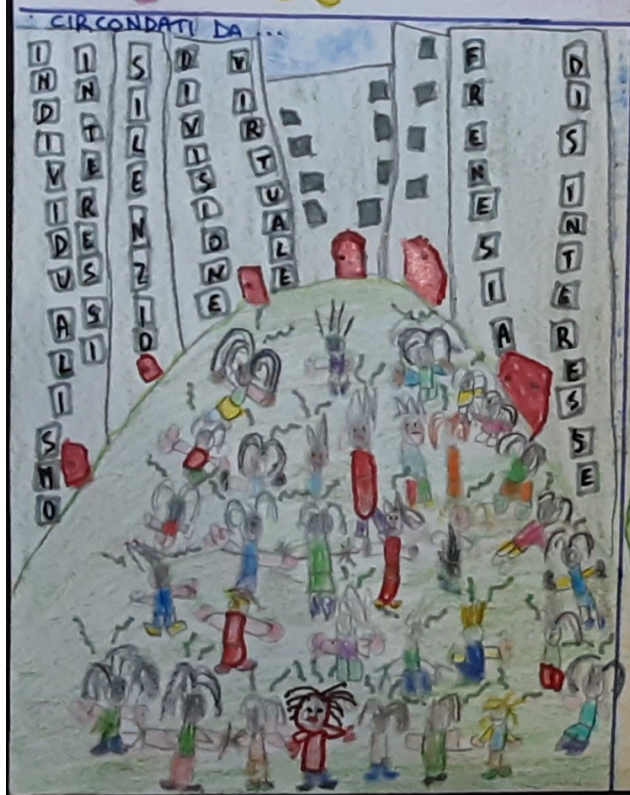 CIRCONDATI DA ...
INDIVIDUALISMO
INTERESSI
SILENZIO
DIVISIONE
VIRTUALE
FRENESIA
DISINTERESSE